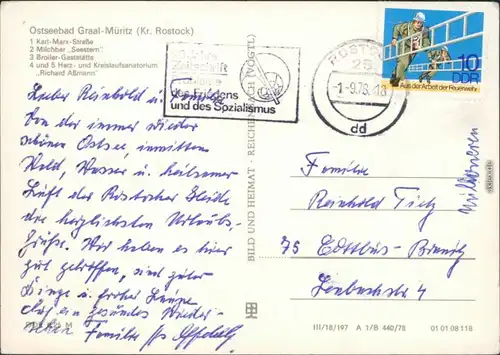 Ostseebad Graal-Müritz (Kr. Rostock)
1 Karl-Marx-Straße
2 Milchbar „Seestern"
3 Broiler-Gaststätte
4 und 5 Herz- und Kreislaufsanatorium
„Richard Aßmann"
Zeitschrift
des Friedens
und des Sozialismus
ROSTOCK
25
-1.-9.78.-18
dd
10
DDR
Aus der Arbeit der Feuerwehr
Lieber Reinhold u.
Von der immer wieder
schönen Ostsee, inmitten
Wald, Wasser u. heilsamer
Luft der Rostocker Heide
die herzlichsten Urlaubs-
grüße. Wir haben es hier
gut getroffen, sind guter
Dinge u. froher Laune
auf ein gesundes Wieder-
sehen Familie
BILD UND HEIMAT · REICHENBACH (VOGTL)
Familie
Reinhold Tietz
75 Cottbus-
4
III/18/197 A 1/B 440/78 01 01 08 118